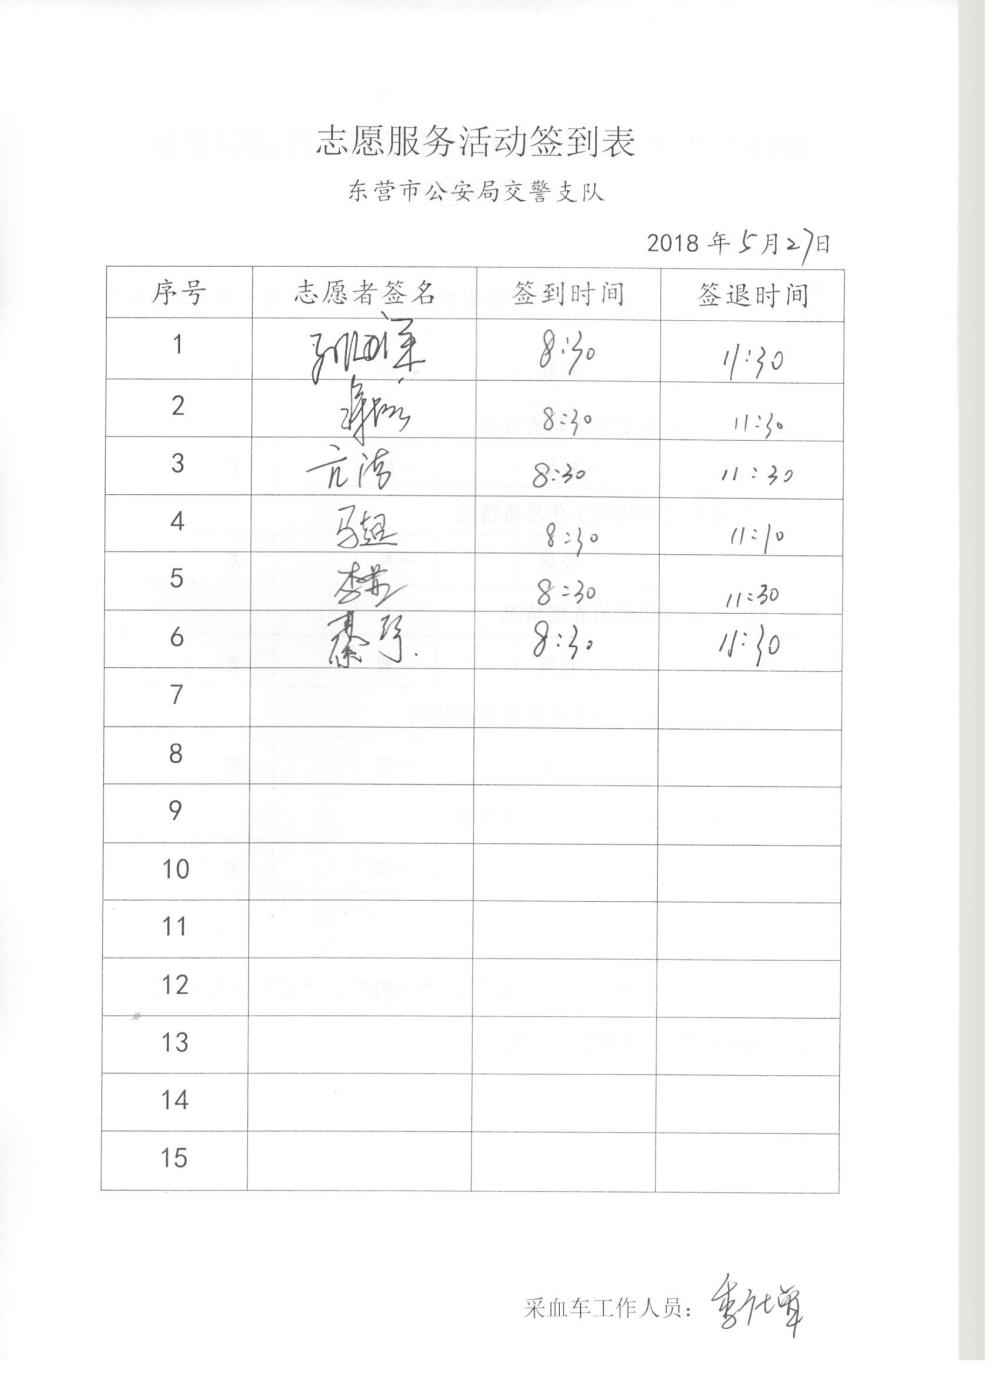 志愿服务活动签到表
东营市公安局交警支队
2018 年 5 月 27 日
序号 志愿者签名 签到时间 签退时间
1 8:30 11:30
2 8:30 11:30
3 亢洁 8:30 11:30
4 马超 8:30 11:10
5 8:30 11:30
6 8:30 11:30
7
8
9
10
11
12
13
14
15
采血车工作人员：